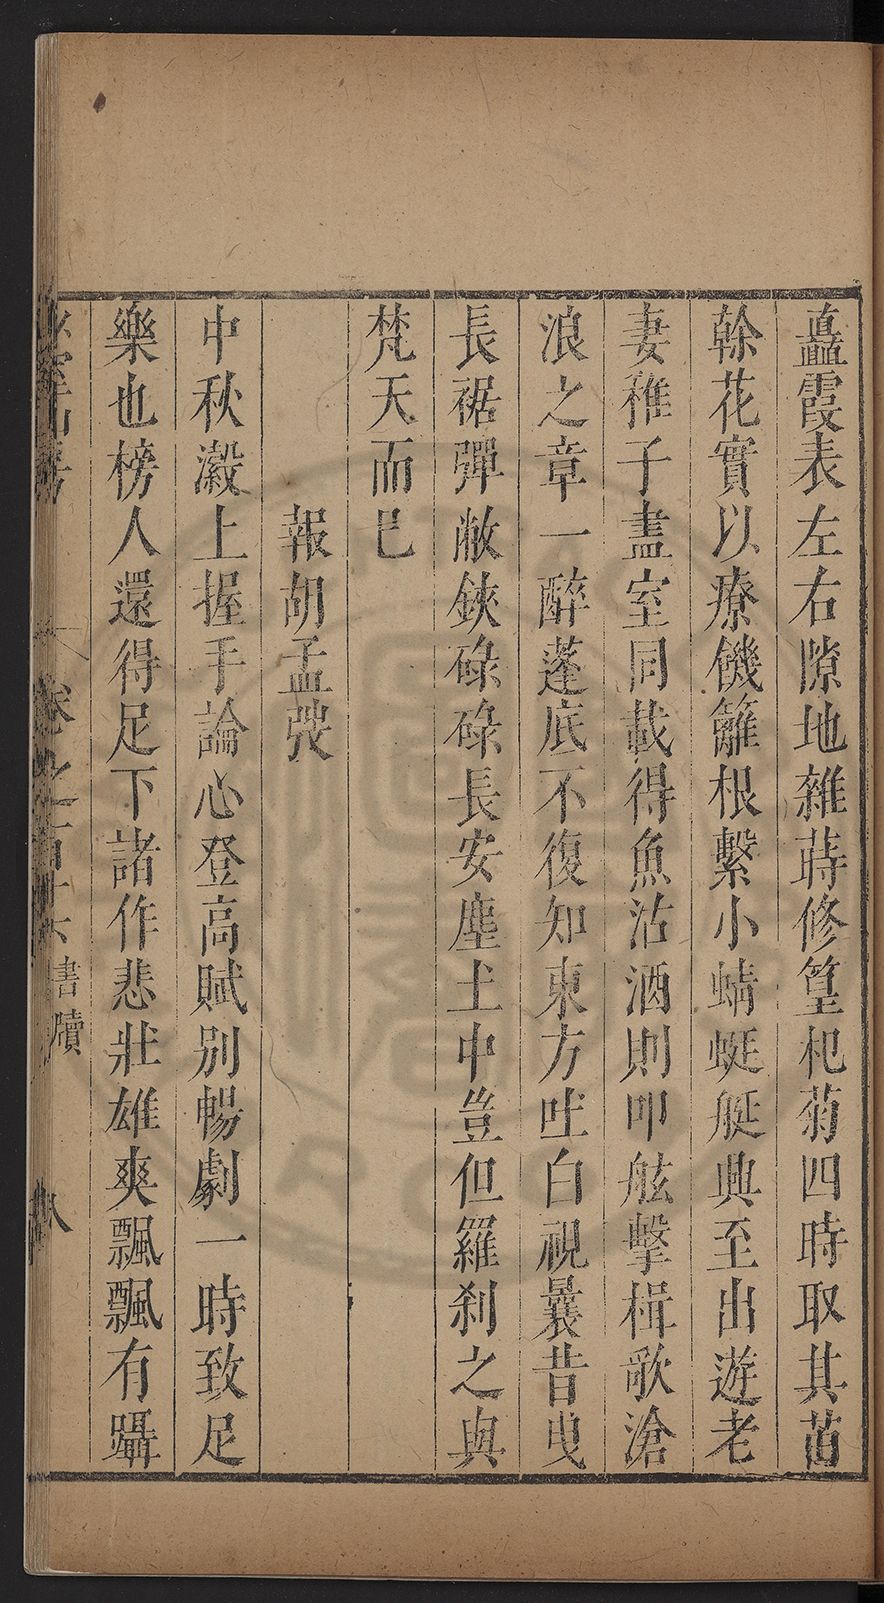 矗霞表左右隙地雜蒔修篁杞菊四時取其苗
幹花實以療饑籬根繫小蜻蜓艇興至出遊老
妻稚子盡室同載得魚沽酒則叩舷擊楫歌滄
浪之章一醉蓬底不復知東方吐白視曩昔曳
長裾彈敝鋏碌碌長安塵土中豈但羅刹之與
梵天而已
報胡孟弢
中秋瀫上握手論心登高賦別暢劇一時致足
樂也榜人還得足下諸作悲壯雄爽飄飄有躡
卷之百十六 書牘 八